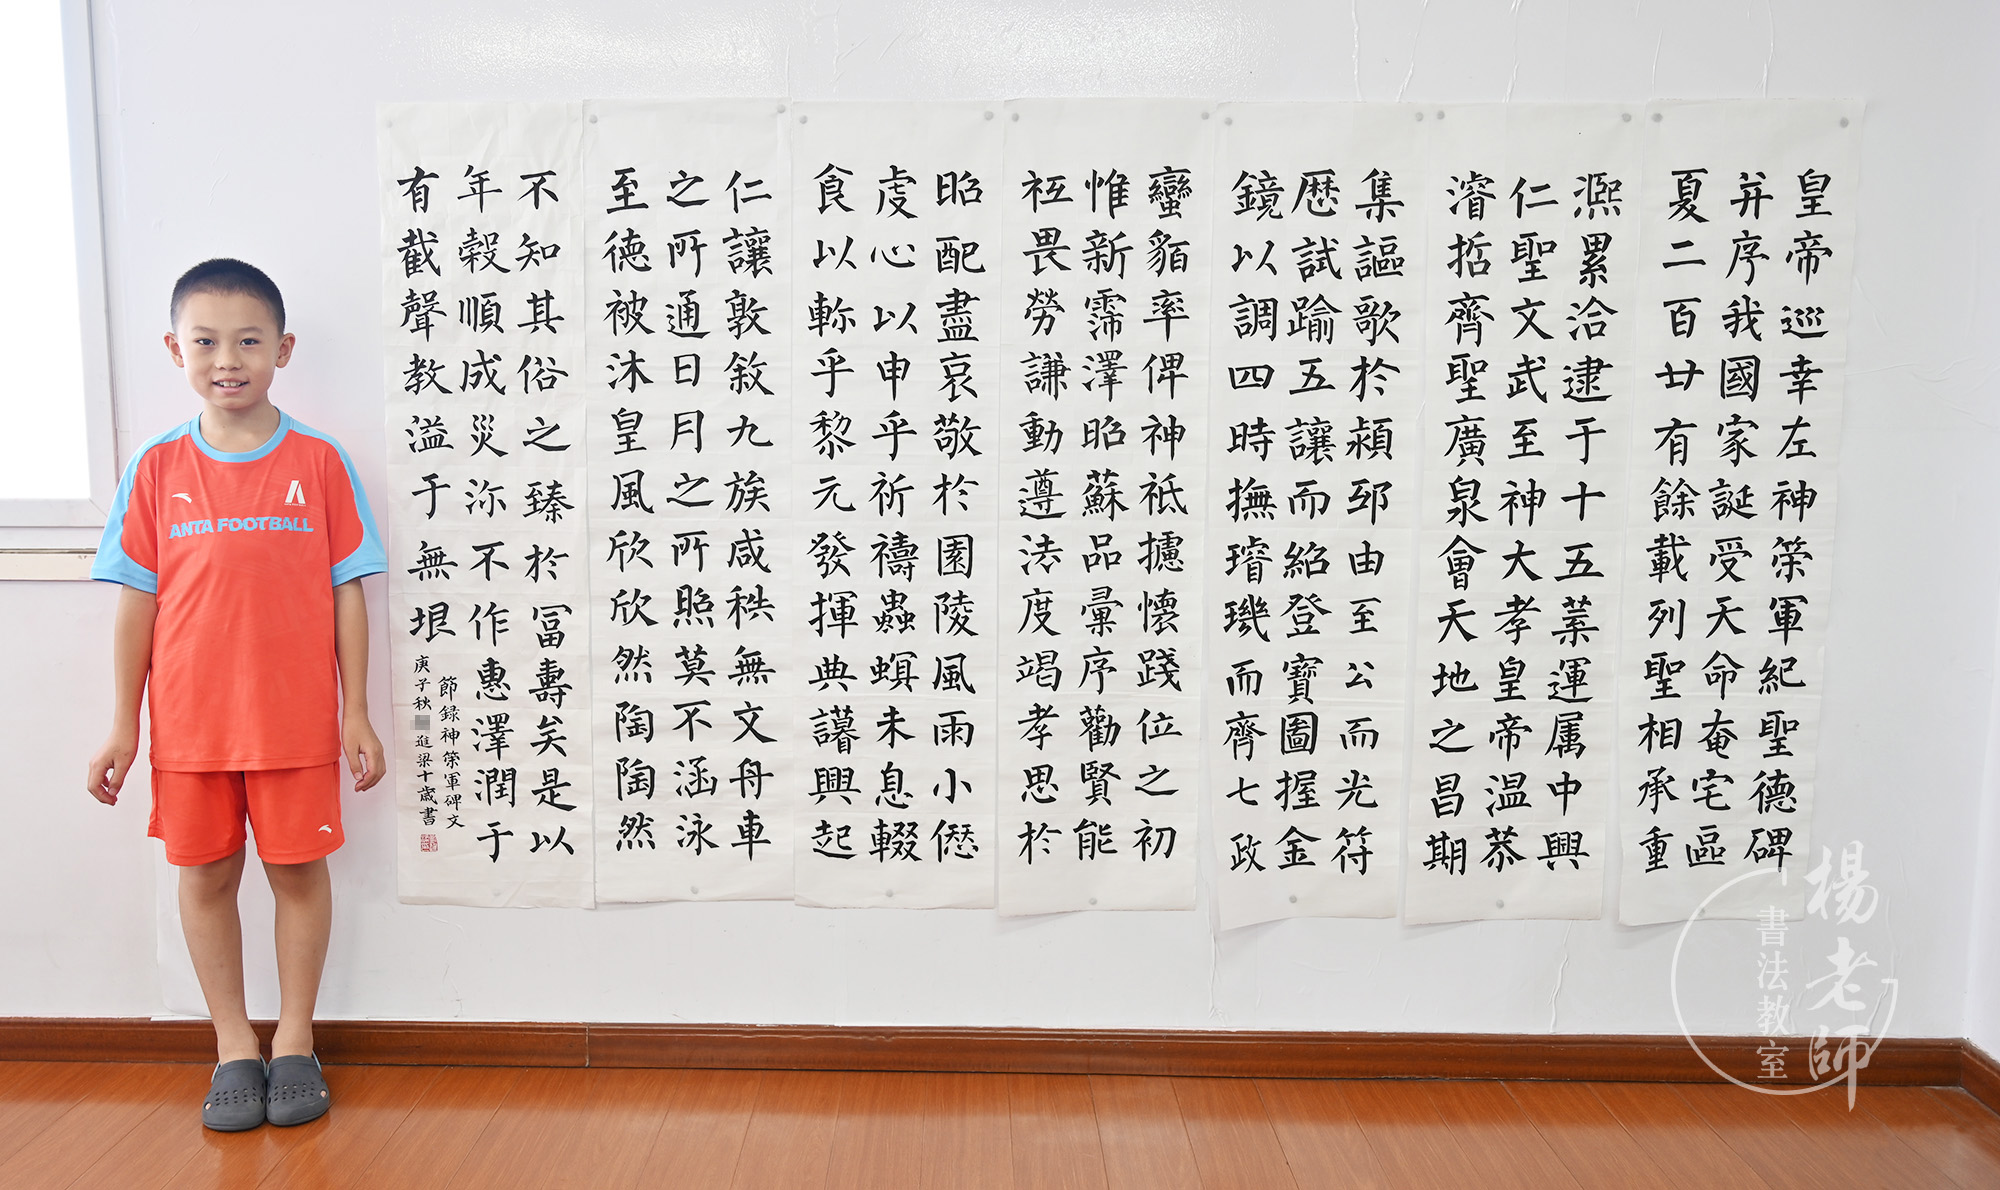 皇帝巡幸左神策軍紀聖德碑
并序我國家誕受天命奄宅區
夏二百廿有餘載列聖相承重
熙累洽逮于十五葉運属中興
仁聖文武至神大孝皇帝温恭
濬哲齊聖廣泉會天地之昌期
集謳歌於潁邸由至公而光符
歷試踰五讓而紹登寶圖握金
鏡以調四時撫璿璣而齊七政
蠻貊率俾神祇攄懷踐位之初
惟新霈澤昭蘇品彙序勸賢能
祗畏勞謙動遵法度竭孝思於
昭配盡哀敬於園陵風雨小僁
虔心以申乎祈禱蟲螟未息輟
食以軫乎黎元發揮典謨興起
仁讓敦敘九族咸秩無文舟車
之所通日月之所照莫不涵泳
至德被沐皇風欣欣然陶陶然
不知其俗之臻於冨壽矣是以
年穀順成災沴不作惠澤潤于
有截聲教溢于無垠
節録神策軍碑文
庚子秋 進梁十歲書
ANTA FOOTBALL
楊老師
書法教室